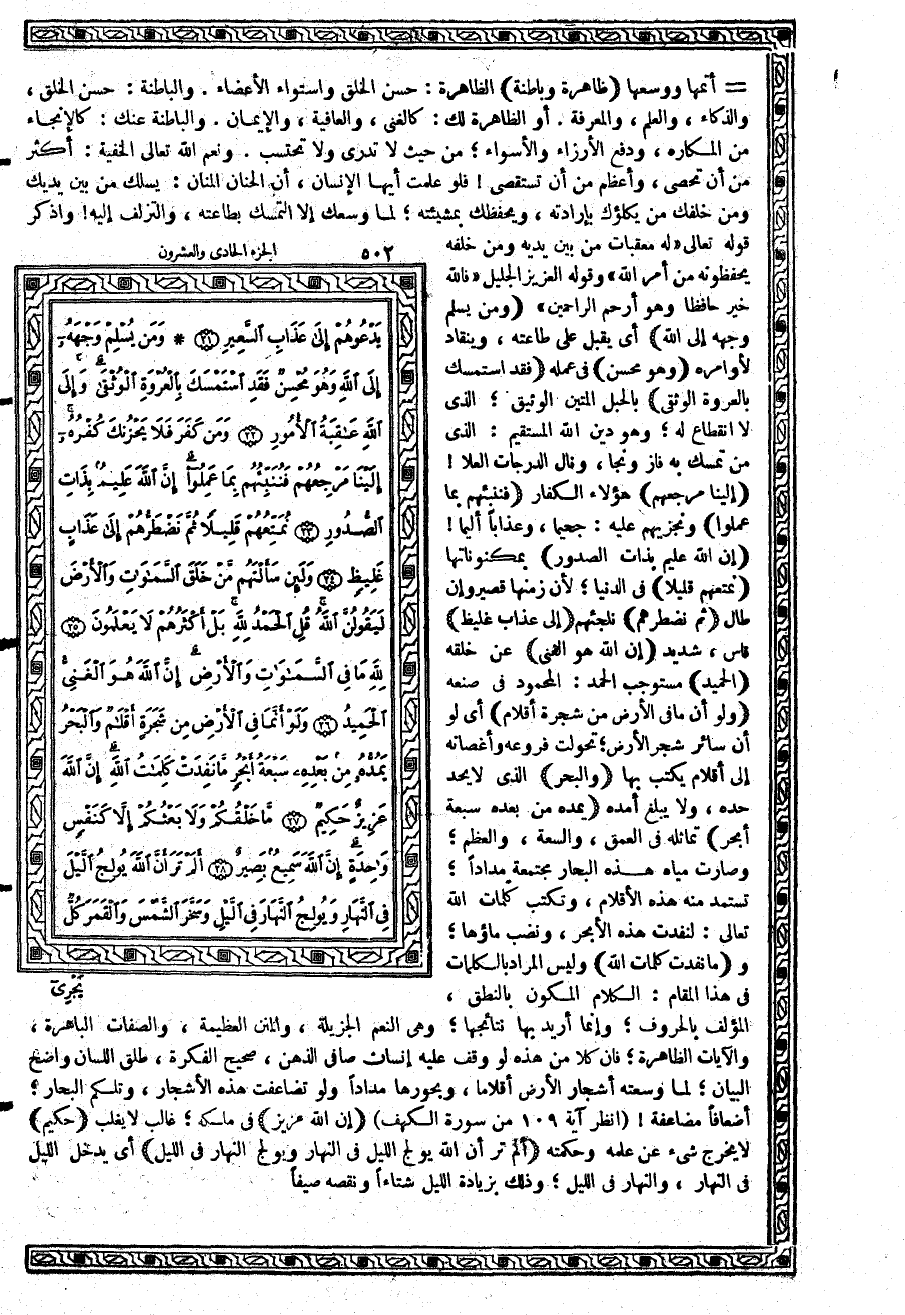 = أتمها ووسعها (ظاهرة وباطنة) الظاهرة : حسن الخلق واستواء الأعضاء . والباطنة : حسن الخلق ،
والذكاء ، والعلم ، والمعرفة . أو الظاهرة لك : كالغنى ، والعافية ، والإيمان . والباطنة عنك : كالإنجاء
من المكاره ، ودفع الأرزاء والأسواء ؛ من حيث لا تدرى ولا تحتسب . ونعم الله تعالى الخفية : أكثر
من أن تحصى ، وأعظم من أن تستقصى ! فلو علمت أيها الإنسان ، أن الحنان المنان : يسلك من بين يديك
ومن خلفك من يكلؤك بإرادته ، ويحفظك بمشيئته ؛ لما وسعك إلا التمسك بطاعته ، والتزلف إليه! واذكر
قوله تعالى «له معقبات من بين يديه ومن خلفه
يحفظونه من أمر الله» وقوله العزيز الجليل «فالله
خير حافظا وهو أرحم الراحمين» (ومن يسلم
وجهه إلى الله) أى يقبل على طاعته ، وينقاد
لأوامره (وهو محسن) فى عمله (فقد استمسك
بالعروة الوثقى) بالحبل المتين الوثيق ؛ الذى
لا انقطاع له ؛ وهو دين الله المستقيم : الذى
من تمسك به فاز ونجا ، ونال الدرجات العلا !
(إلينا مرجعهم) هؤلاء الكفار (فننبئهم بما
عملوا) ونجزيهم عليه : جحيما ، وعذاباً أليما !
(إن الله عليم بذات الصدور) بمكنوناتها
(نمتعهم قليلا) فى الدنيا ؛ لأن زمنها قصير وإن
طال (ثم نضطرهم) نلجئهم (إلى عذاب غليظ)
قاس ، شديد (إن الله هو الغنى) عن خلقه
(الحميد) مستوجب الحمد : المحمود فى صنعه
(ولو أن مافى الأرض من شجرة أقلام) أى لو
أن سائر شجر الأرض؛ تحولت فروعه وأغصانه
إلى أقلام يكتب بها (والبحر) الذى لايحد
حده ، ولا يبلغ أمده (يمده من بعده سبعة
أبحر) تماثله فى العمق ، والسعة ، والعظم ؛
وصارت مياه هذه البحار مجتمعة مداداً ؛
تستمد منه هذه الأقلام ، وتكتب كلمات الله
تعالى : لنفدت هذه الأبحر ، ونضب ماؤها ؛
و (مانفدت كلمات الله) وليس المراد بالكلمات
فى هذا المقام : الكلام المكون بالنطق ،
الجزء الحادى والعشرون ٥٠٢
يَدْعُوهُمْ إِلَىٰ عَذَابِ ٱلسَّعِيرِ ٢١ * وَمَن يُسْلِمْ وَجْهَهُۥٓ
إِلَى ٱللَّهِ وَهُوَ مُحْسِنٌ فَقَدِ ٱسْتَمْسَكَ بِٱلْعُرْوَةِ ٱلْوُثْقَىٰ وَإِلَى
ٱللَّهِ عَٰقِبَةُ ٱلْأُمُورِ ٢٢ وَمَن كَفَرَ فَلَا يَحْزُنكَ كُفْرُهُۥٓ
إِلَيْنَا مَرْجِعُهُمْ فَنُنَبِّئُهُم بِمَا عَمِلُوٓا۟ إِنَّ ٱللَّهَ عَلِيمٌۢ بِذَاتِ
ٱلصُّدُورِ ٢٣ نُمَتِّعُهُمْ قَلِيلًا ثُمَّ نَضْطَرُّهُمْ إِلَىٰ عَذَابٍ
غَلِيظٍ ٢٤ وَلَئِن سَأَلْتَهُم مَّنْ خَلَقَ ٱلسَّمَٰوَٰتِ وَٱلْأَرْضَ
لَيَقُولُنَّ ٱللَّهُ قُلِ ٱلْحَمْدُ لِلَّهِ بَلْ أَكْثَرُهُمْ لَا يَعْلَمُونَ ٢٥
لِلَّهِ مَا فِى ٱلسَّمَٰوَٰتِ وَٱلْأَرْضِ إِنَّ ٱللَّهَ هُوَ ٱلْغَنِىُّ
ٱلْحَمِيدُ ٢٦ وَلَوْ أَنَّمَا فِى ٱلْأَرْضِ مِن شَجَرَةٍ أَقْلَٰمٌ وَٱلْبَحْرُ
يَمُدُّهُۥ مِنۢ بَعْدِهِۦ سَبْعَةُ أَبْحُرٍ مَّا نَفِدَتْ كَلِمَٰتُ ٱللَّهِ إِنَّ ٱللَّهَ
عَزِيزٌ حَكِيمٌ ٢٧ مَّا خَلْقُكُمْ وَلَا بَعْثُكُمْ إِلَّا كَنَفْسٍ
وَٰحِدَةٍ إِنَّ ٱللَّهَ سَمِيعٌۢ بَصِيرٌ ٢٨ أَلَمْ تَرَ أَنَّ ٱللَّهَ يُولِجُ ٱلَّيْلَ
فِى ٱلنَّهَارِ وَيُولِجُ ٱلنَّهَارَ فِى ٱلَّيْلِ وَسَخَّرَ ٱلشَّمْسَ وَٱلْقَمَرَ كُلٌّ
يَجْرِىٓ
المؤلف بالحروف ؛ وإنما أريد بها نتائجها ؛ وهى النعم الجزيلة ، والمنن العظيمة ، والصفات الباهرة ،
والآيات الظاهرة ؛ فان كلا من هذه لو وقف عليه إنسان صافى الذهن ، صحيح الفكرة ، طلق اللسان واضح
البيان ؛ لما وسعته أشجار الأرض أقلاما ، وبحورها مداداً ولو تضاعفت هذه الأشجار ، وتلكم البحار ؛
أضعافاً مضاعفة ! (انظر آية ١٠٩ من سورة الكهف) (إن الله عزيز) فى ملكه ؛ غالب لايغلب (حكيم)
لايخرج شىء عن علمه وحكمته (ألم تر أن الله يولج الليل فى النهار ويولج النهار فى الليل) أى يدخل الليل
فى النهار ، والنهار فى الليل ؛ وذلك بزيادة الليل شتاءاً ونقصه صيفاً